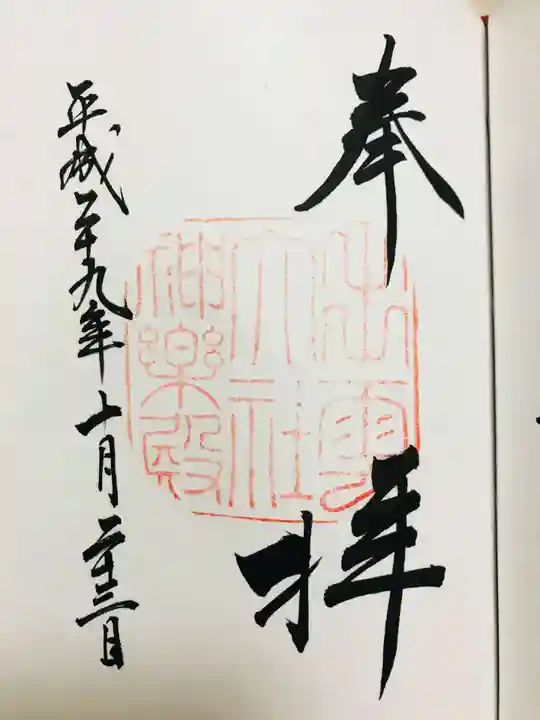 奉拝
出雲
大社
神楽殿
平成二十九年十月二十三日